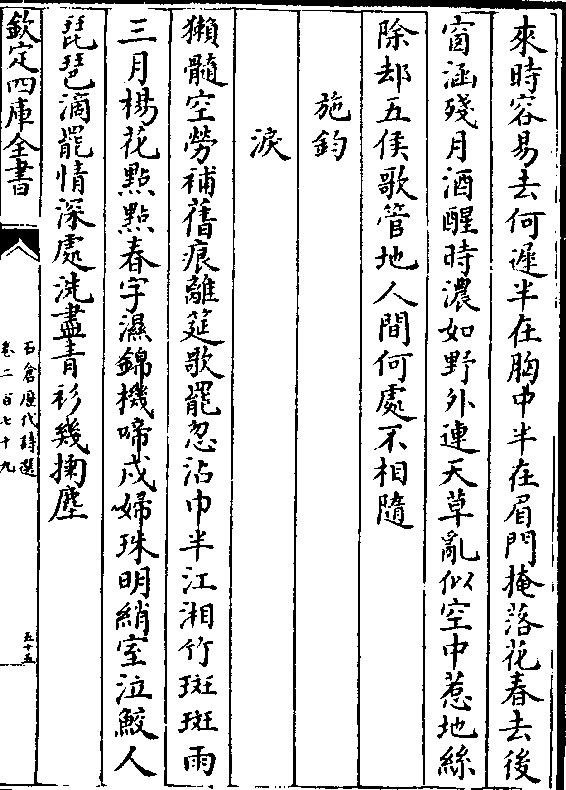 來時容易去何遲半在胸中半在眉門掩落花春去後
窗涵殘月酒醒時濃如野外連天草亂似空中惹地絲
除却五侯歌管地人間何處不相隨
施鈞
淚
獺髓空勞補舊痕離筵歌罷忽沾巾半江湘竹斑斑雨
三月楊花點點春字濕錦機啼戍婦珠明綃室泣鮫人
琵琶滴罷情深處洗盡青衫幾掬塵
欽定四庫全書
石倉歷代詩選
卷二百七十九
五十五